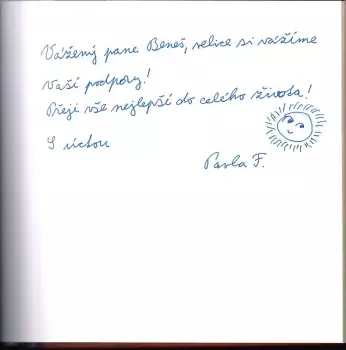 Vážený pane Beneš, velice si vážíme
Vaší podpory!
Přeji vše nejlepší do celého života!
S úctou
Pavla F.